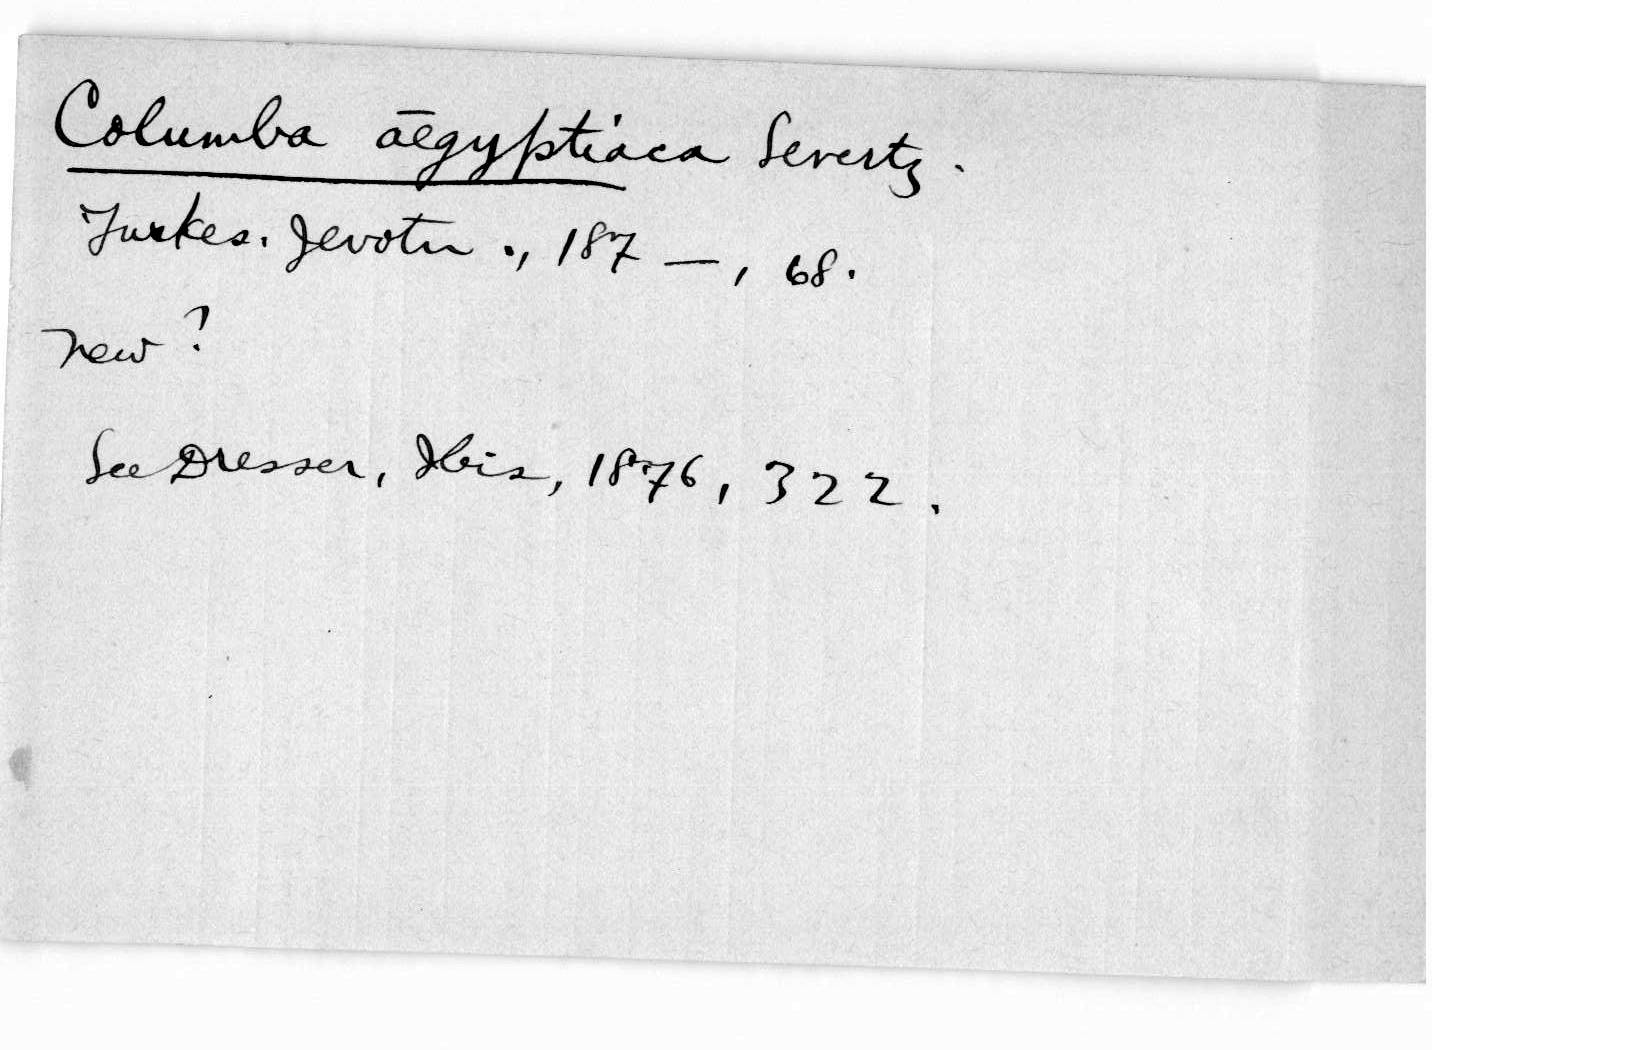 Columba āegyptiaca Severtz.
Turkes. Jevotn., 187—, 68.
new?
See Dresser, Ibis, 1876, 322.